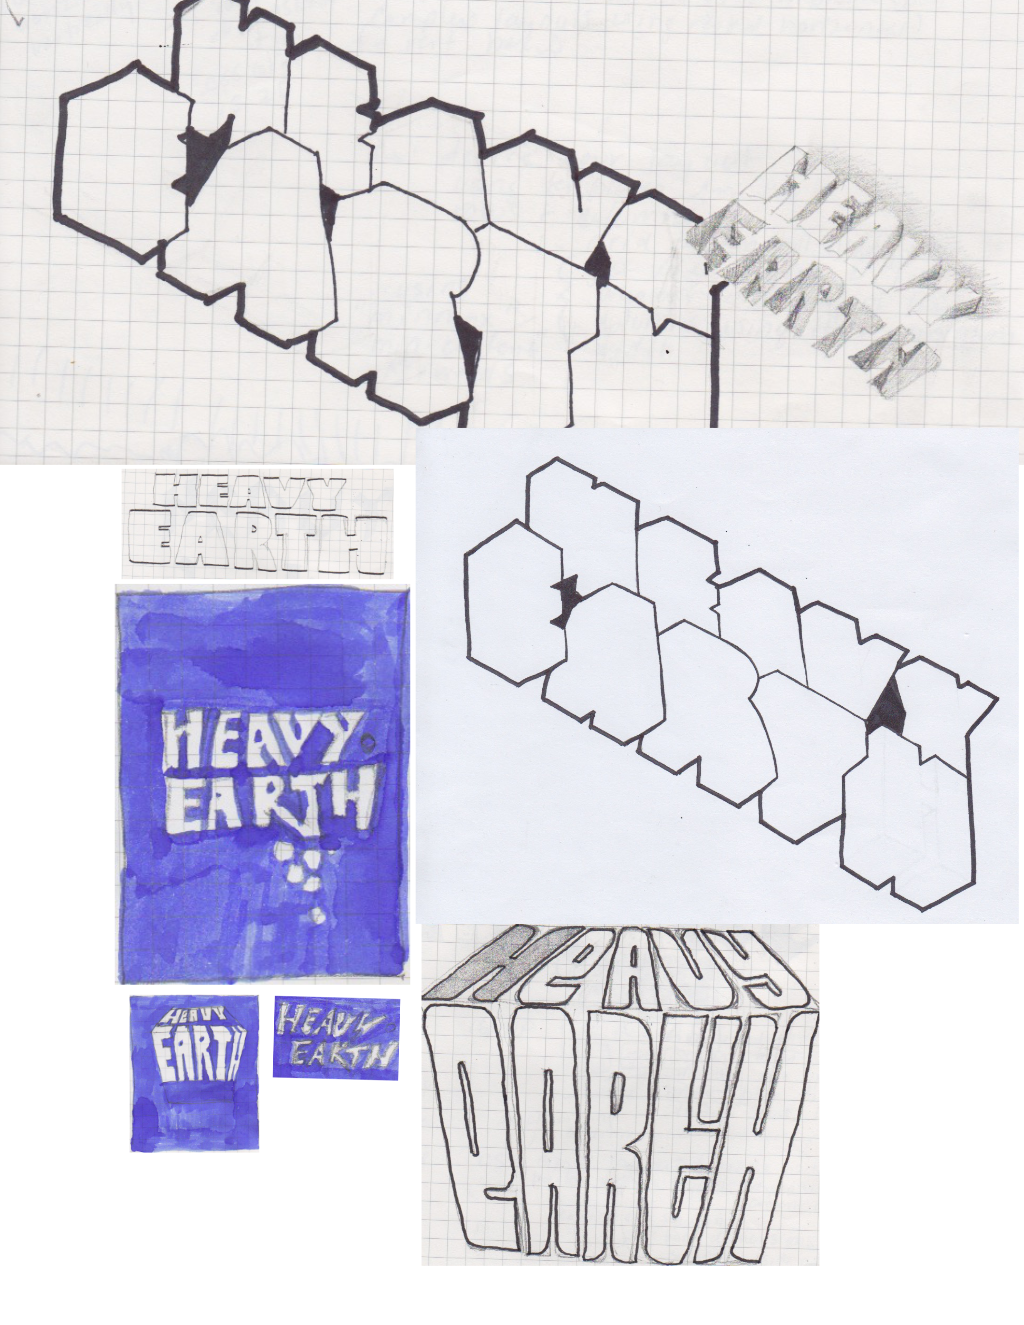 HEAVY
EARTH
HEAVY
EARTH
HEAVY
EARTH
HEAVY
EARTH
HEAVY
EARTH
HeAVy
eARtH